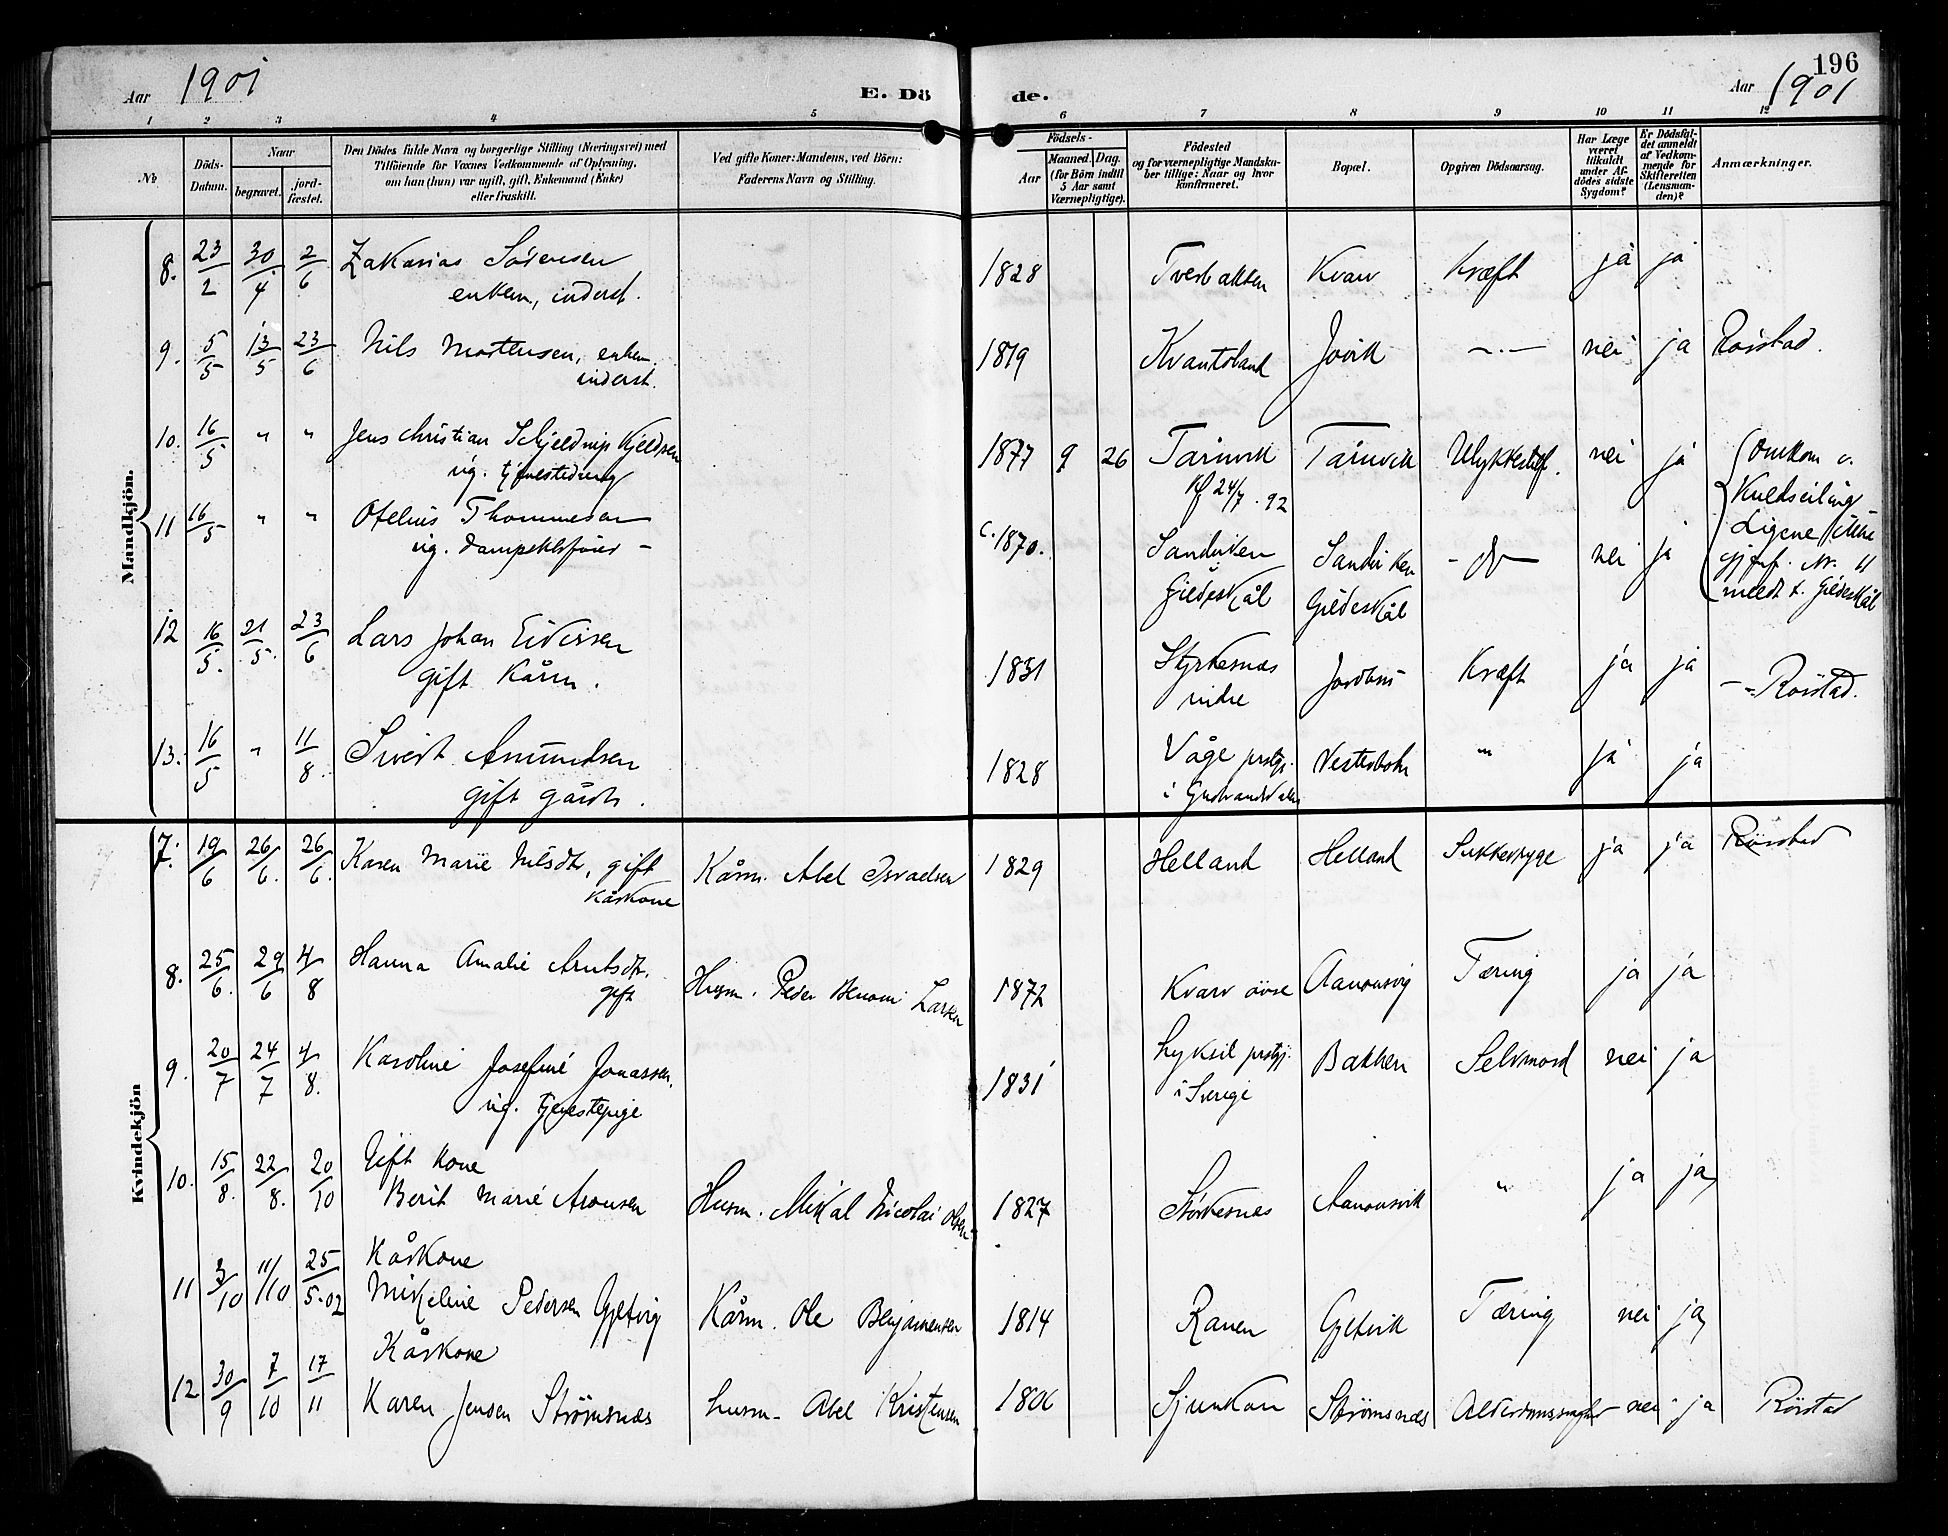 196
Aar 1901 E. Dö de. Aar 1901
1 2 3 4 5 6 7 8 9 10 11 12
No
Döds-
Datum.
Naar
begravet. jord-
fæstet.
Den Dödes fulde Navn og borgerlige Stilling (Næringsvei) med
Tilföiende for Voxnes Vedkommende af Oplysning,
om han (hun) var ugift, gift, Enkemand (Enke)
eller fraskilt.
Ved gifte Koner: Mandens, ved Börn:
Faderens Navn og Stilling.
Födsels-
Aar Maaned. Dag.
(for Börn indtil
5 Aar samt
Værnepligtige).
Födested
og for værnepligtige Mandsku-
ber tillige: Naar og hvor
konfirmeret.
Bopæl.
Opgiven Dödsaarsag.
Har Læge
været
tilkaldt
under Af-
dödes sidste
Sygdom?
Er Dödsfal-
det anmeldt
af Vedkom-
mende for
Skifteretten
(Lensman-
den)?
Anmærkninger.
Mandkjön.
8. 23/2 30/4 2/6 Zakarias Sörensen 1828 Tverbakken Kvarv Kræft ja ja
enkem, inderst.
9. 5/5 13/5 23/6 Nils Mortensen, enkem 1819 Kvantoland Jovik -.- nei ja Rörstad.
inderst.
10. 16/5 " " Jens Christian Schjeldrup Kjeldsen 1877 9 26 Tårnvik Tårnvik Ulykkestilf. nei ja Omkom v.
ug. tjenestedreng Kf 24/7. 92 Kuldseiling
11 16/5 " " Otelius Thommesen c. 1870. Sandviken Sandviken - do - nei ja Ligene ikke
ug. dampskbsförer - Gildeskål Gildeskål gjenf. Nr. 11
meldt t. Gildeskål
12 16/5. 21/5. 23/6 Lars Johan Eidissen 1831 Styrkesnæs Jordbru Kræft ja ja - - Rörstad.
gift Kårm. indre
13. 16/5 " 11/8. Sivert Asmundsen 1828 Våge prstgj. Vesterbotn " ja ja
gift gårdb. i Gudbrandsdalen
Kvindekjön
7. 19/6 26/6. 26/6. Karen Marie Nilsdtr, gift Kårm. Abel Israelsen 1829 Helland Helland Sukkersyge ja ja Rörstad
Kårkone
8. 25/6. 29/6 4/8 Hanna Amalie Arntsdtr. Husm. Peder Benoni Larsen 1872 Kvarv övre Aanonsvig Tæring ja ja
gift
9. 20/7 24/7 4/8. Karoline Josefine Jonassen, 1831 Lyksil prstgj. Bakken Selvmord nei ja
ug. tjenestepige i Sverige
10. 15/8. 22/8. 20/10 Gift Kone
Berit Marie Aronsen Husm. Mikal Nicolai Olsen 1827 Störkesnæs Aanonsvik " ja ja
11 3/10 11/10 25/5-02 Kårkone
Mikeline Pedersen Gyltvig Kårm. Ole Benjaminsen 1814 Ranen Gyltvik Tæring nei ja
12 30/9 7/10 17/11 Kårkone
Karen Jensen Strömsnæs husm. Abel Kristensen 1806 Sjunkan Strömsnæs Alderdomssvaghed nei ja Rörstad